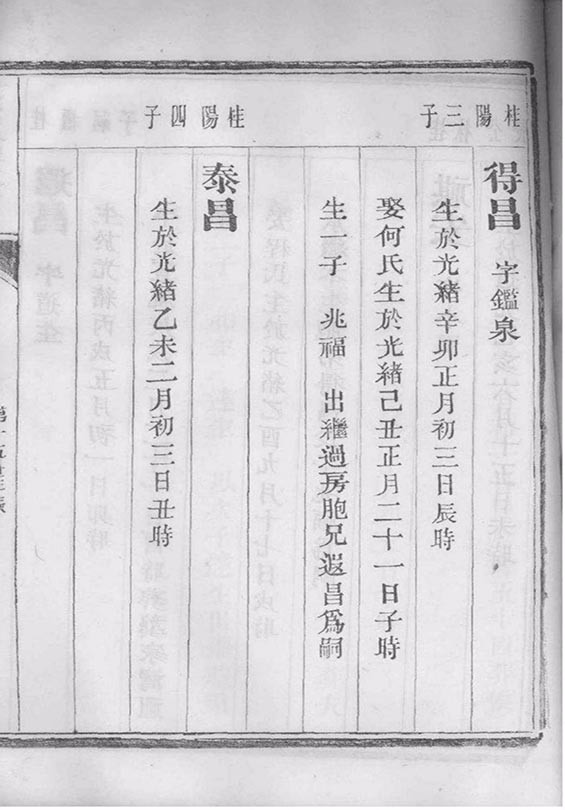 桂陽三子
得昌 字鑑泉
生於光緒辛卯正月初三日辰時
娶何氏生於光緒己丑正月二十一日子時
生一子 兆福 出繼過房胞兄遐昌爲嗣
桂陽四子
泰昌
生於光緒乙未二月初三日丑時